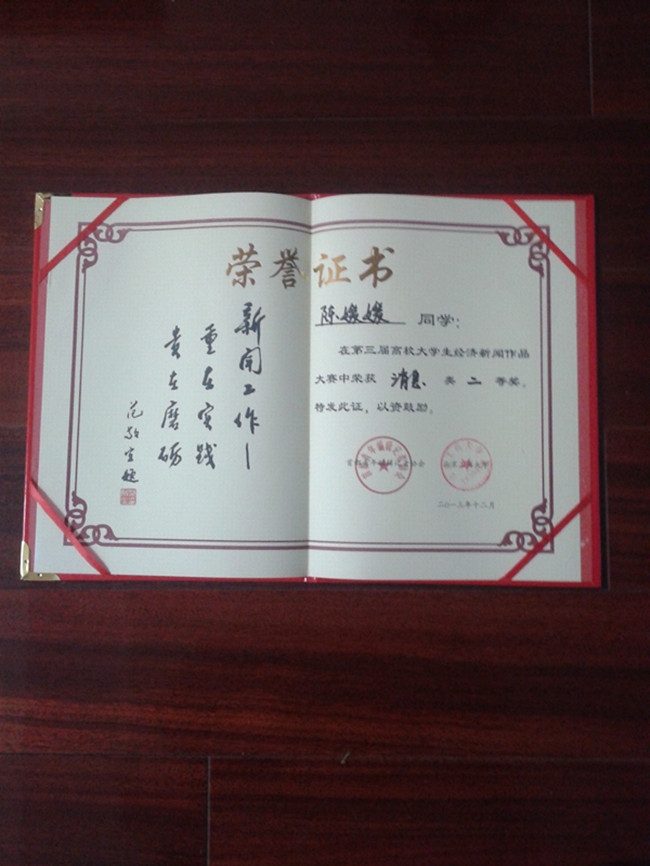 荣誉证书
新闻工作—
重在实践
贵在磨砺
范敬宜题
陈媛媛 同学：
在第三届高校大学生经济新闻作品
大赛中荣获 消息 类 二 等奖。
特发此证，以资鼓励。
二〇一三年十二月